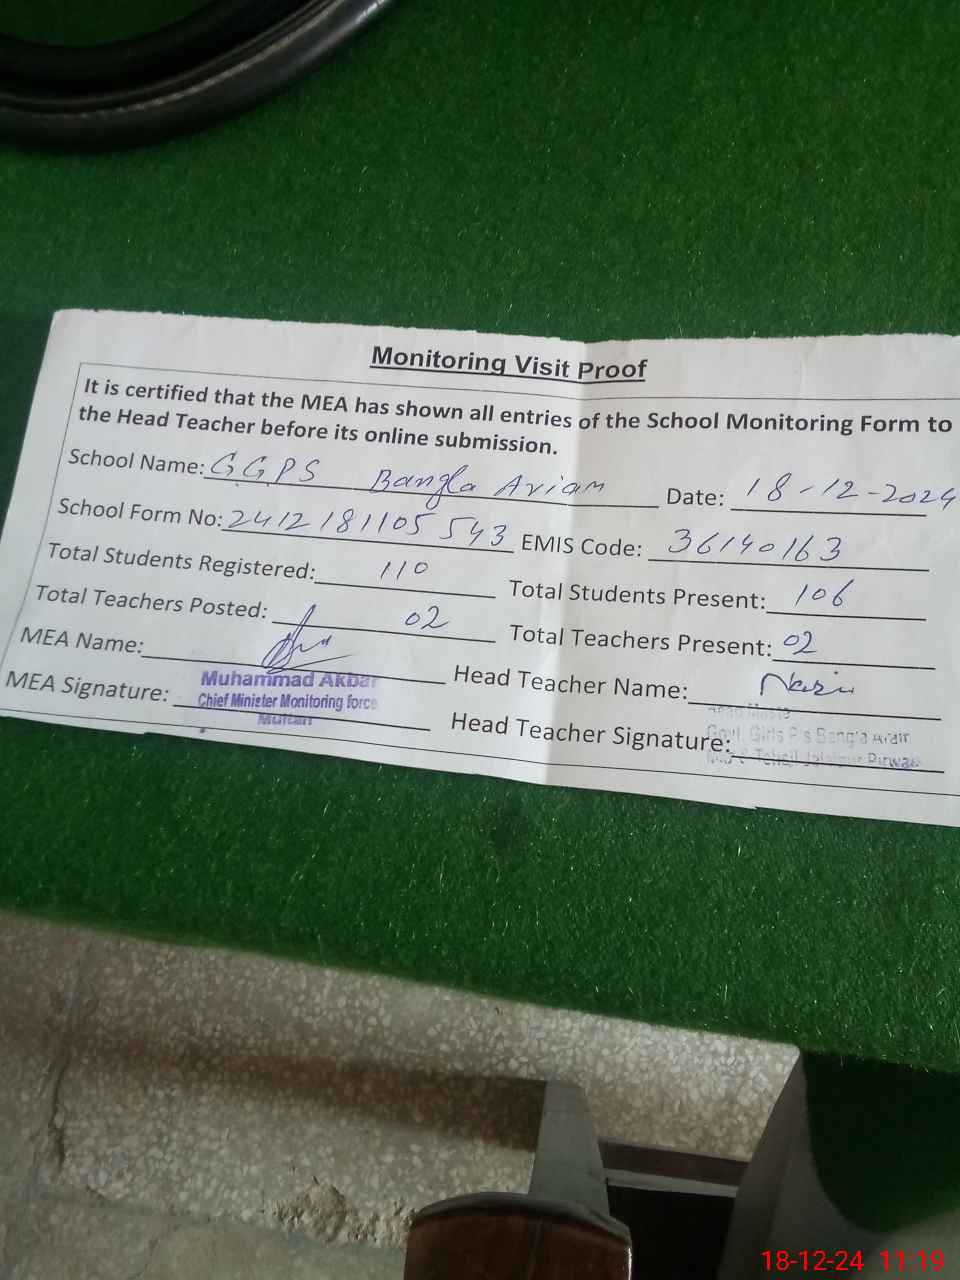 Monitoring Visit Proof
It is certified that the MEA has shown all entries of the School Monitoring Form to
the Head Teacher before its online submission.
School Name: GGPS Bangla Ariam Date: 18-12-2024
School Form No: 2412181105543 EMIS Code: 36140163
Total Students Registered: 110 Total Students Present: 106
Total Teachers Posted: 02 Total Teachers Present: 02
MEA Name: Head Teacher Name:
Muhammad Akbar
MEA Signature: Chief Minister Monitoring force Head Teacher Signature:
Multan
Govt. Girls P/s Bangla
Tehsil Jalalpur Pirwala
18-12-24 11:19